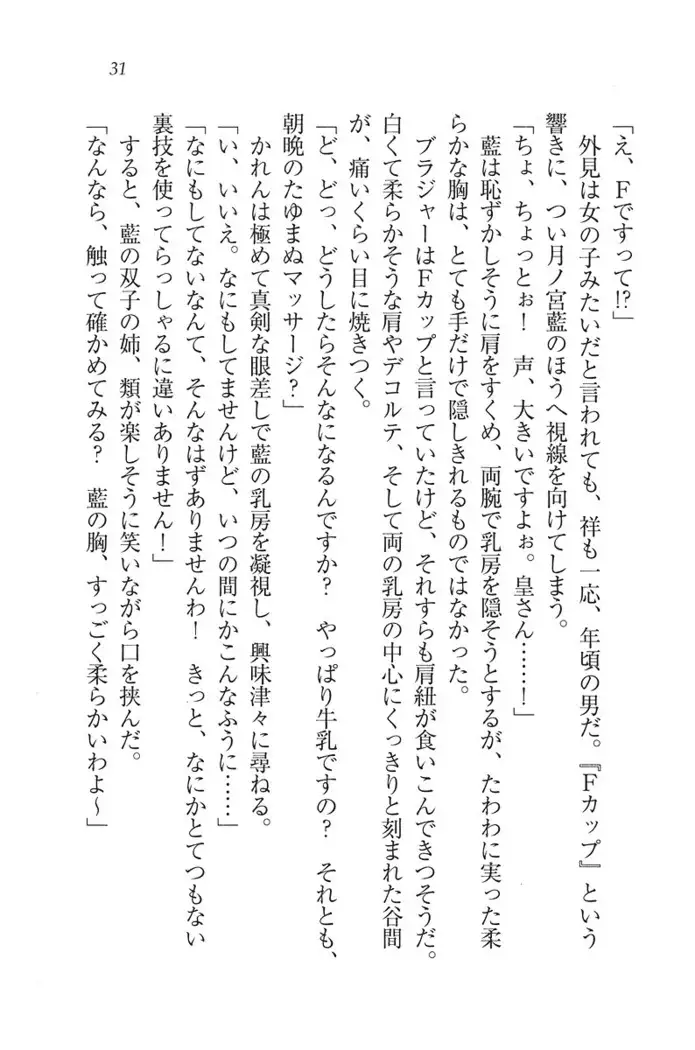 31
「え、Fですって!?」
外見は女の子みたいだと言われても、祥も一応、年頃の男だ。『Fカップ』という
響きに、つい月ノ宮藍のほうへ視線を向けてしまう。
「ちょ、ちょっとぉ！　声、大きいですよぉ。皇さん……！」
藍は恥ずかしそうに肩をすくめ、両腕で乳房を隠そうとするが、たわわに実った柔
らかな胸は、とても手だけで隠しきれるものではなかった。
ブラジャーはFカップと言っていたけど、それすらも肩紐が食いこんできつそうだ。
白くて柔らかそうな肩やデコルテ、そして両の乳房の中心にくっきりと刻まれた谷間
が、痛いくらい目に焼きつく。
「ど、どっ、どうしたらそんなになるんですか？　やっぱり牛乳ですの？　それとも、
朝晩のたゆまぬマッサージ？」
かれんは極めて真剣な眼差しで藍の乳房を凝視し、興味津々に尋ねる。
「い、いいえ。なにもしてませんけど、いつの間にかこんなふうに……」
「なにもしてないなんて、そんなはずありませんわ！　きっと、なにかとてつもない
裏技を使ってらっしゃるに違いありません！」
すると、藍の双子の姉、類が楽しそうに笑いながら口を挟んだ。
「なんなら、触って確かめてみる？　藍の胸、すっごく柔らかいわよ～」